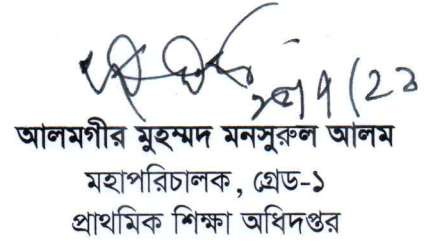 আলমগীর মুহম্মদ মনসুরুল আলম
মহাপরিচালক, গ্রেড-১
প্রাথমিক শিক্ষা অধিদপ্তর